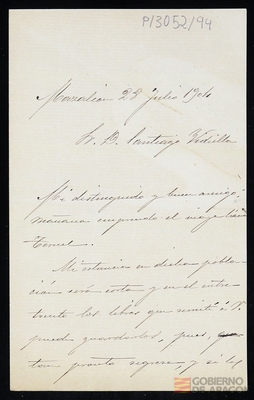 P/3052/94
Mazaleon 28 julio 1906
Sr. D. Santiago Vidiella
Mi distinguido y buen amigo:
mañana emprendo el viaje hacia
Teruel.
Mi estancia en dicha pobla-
ción será corta y en el entre-
tanto los libros que remití a V.
puede guardarlos, pues,
tan pronto regrese, y si
GOBIERNO
DE ARAGON